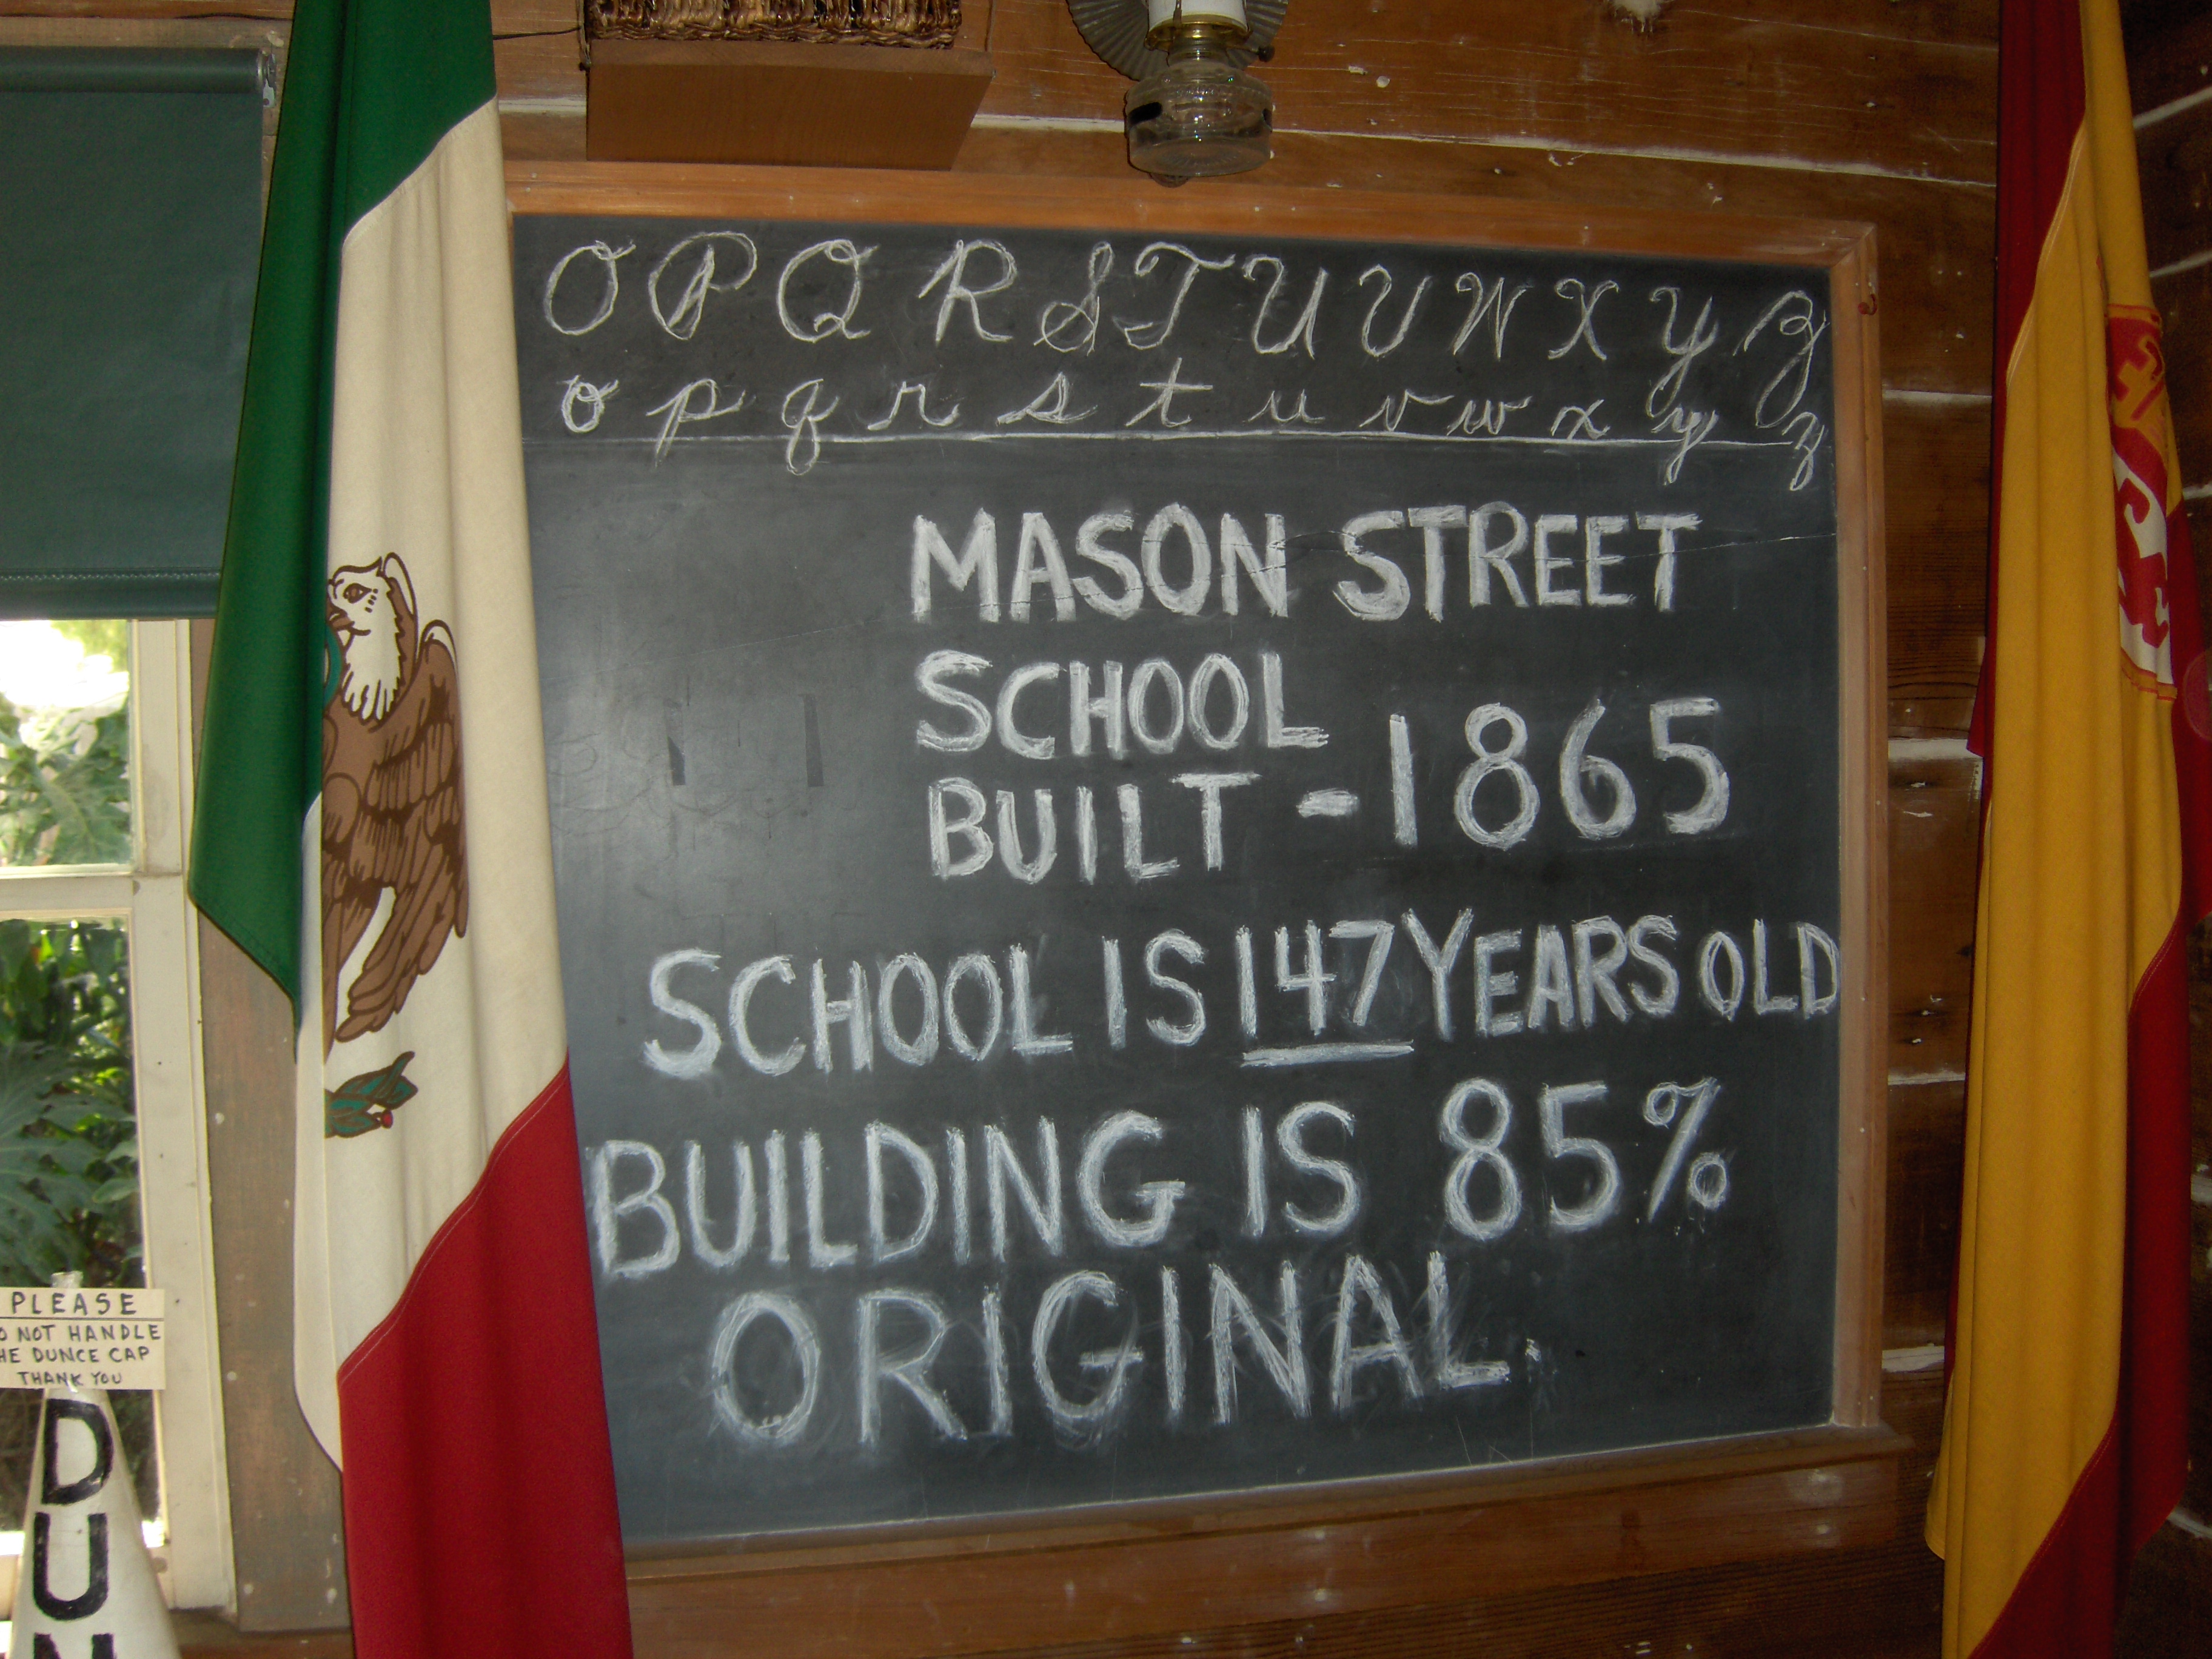 O P Q R S T U V W X Y Z
o p q r s t u v w x y z
MASON STREET
SCHOOL
BUILT - 1865
SCHOOL IS 147 YEARS OLD
BUILDING IS 85%
ORIGINAL.
PLEASE
O NOT HANDLE
HE DUNCE CAP
THANK YOU
DUN